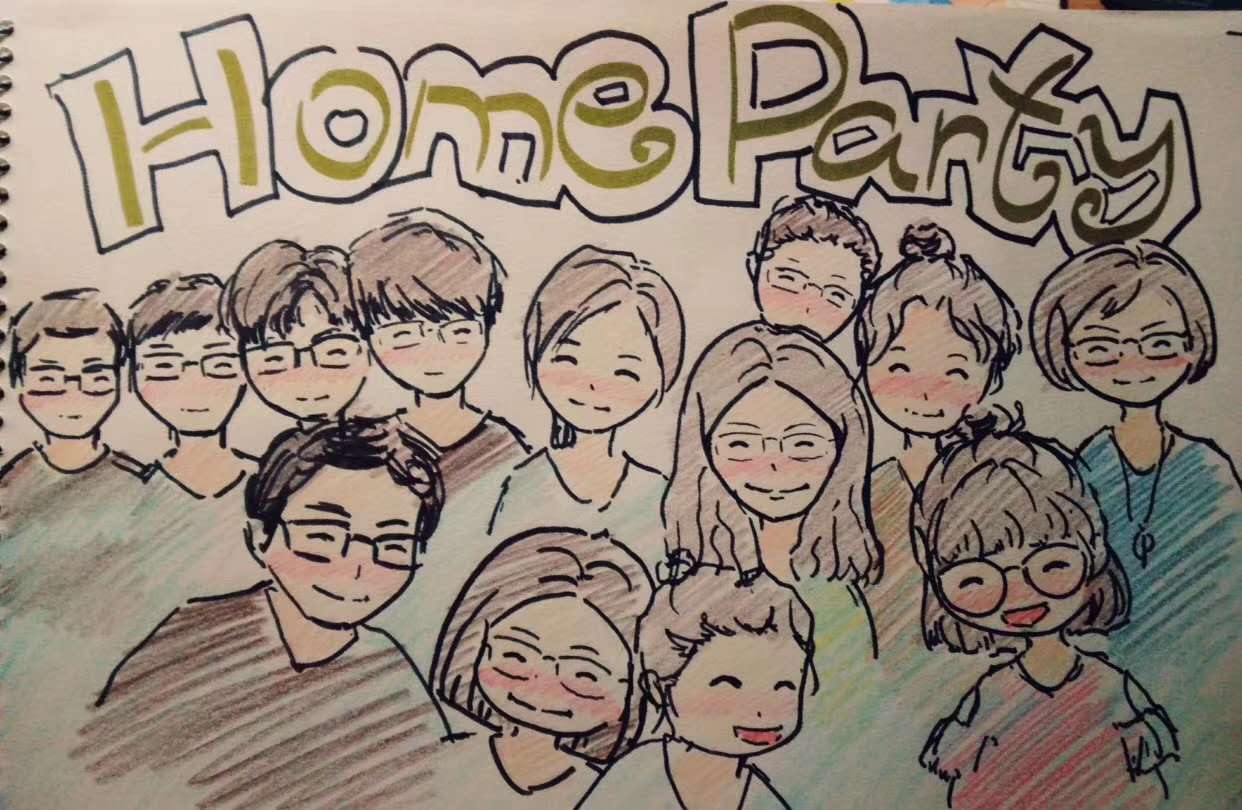 Home Party